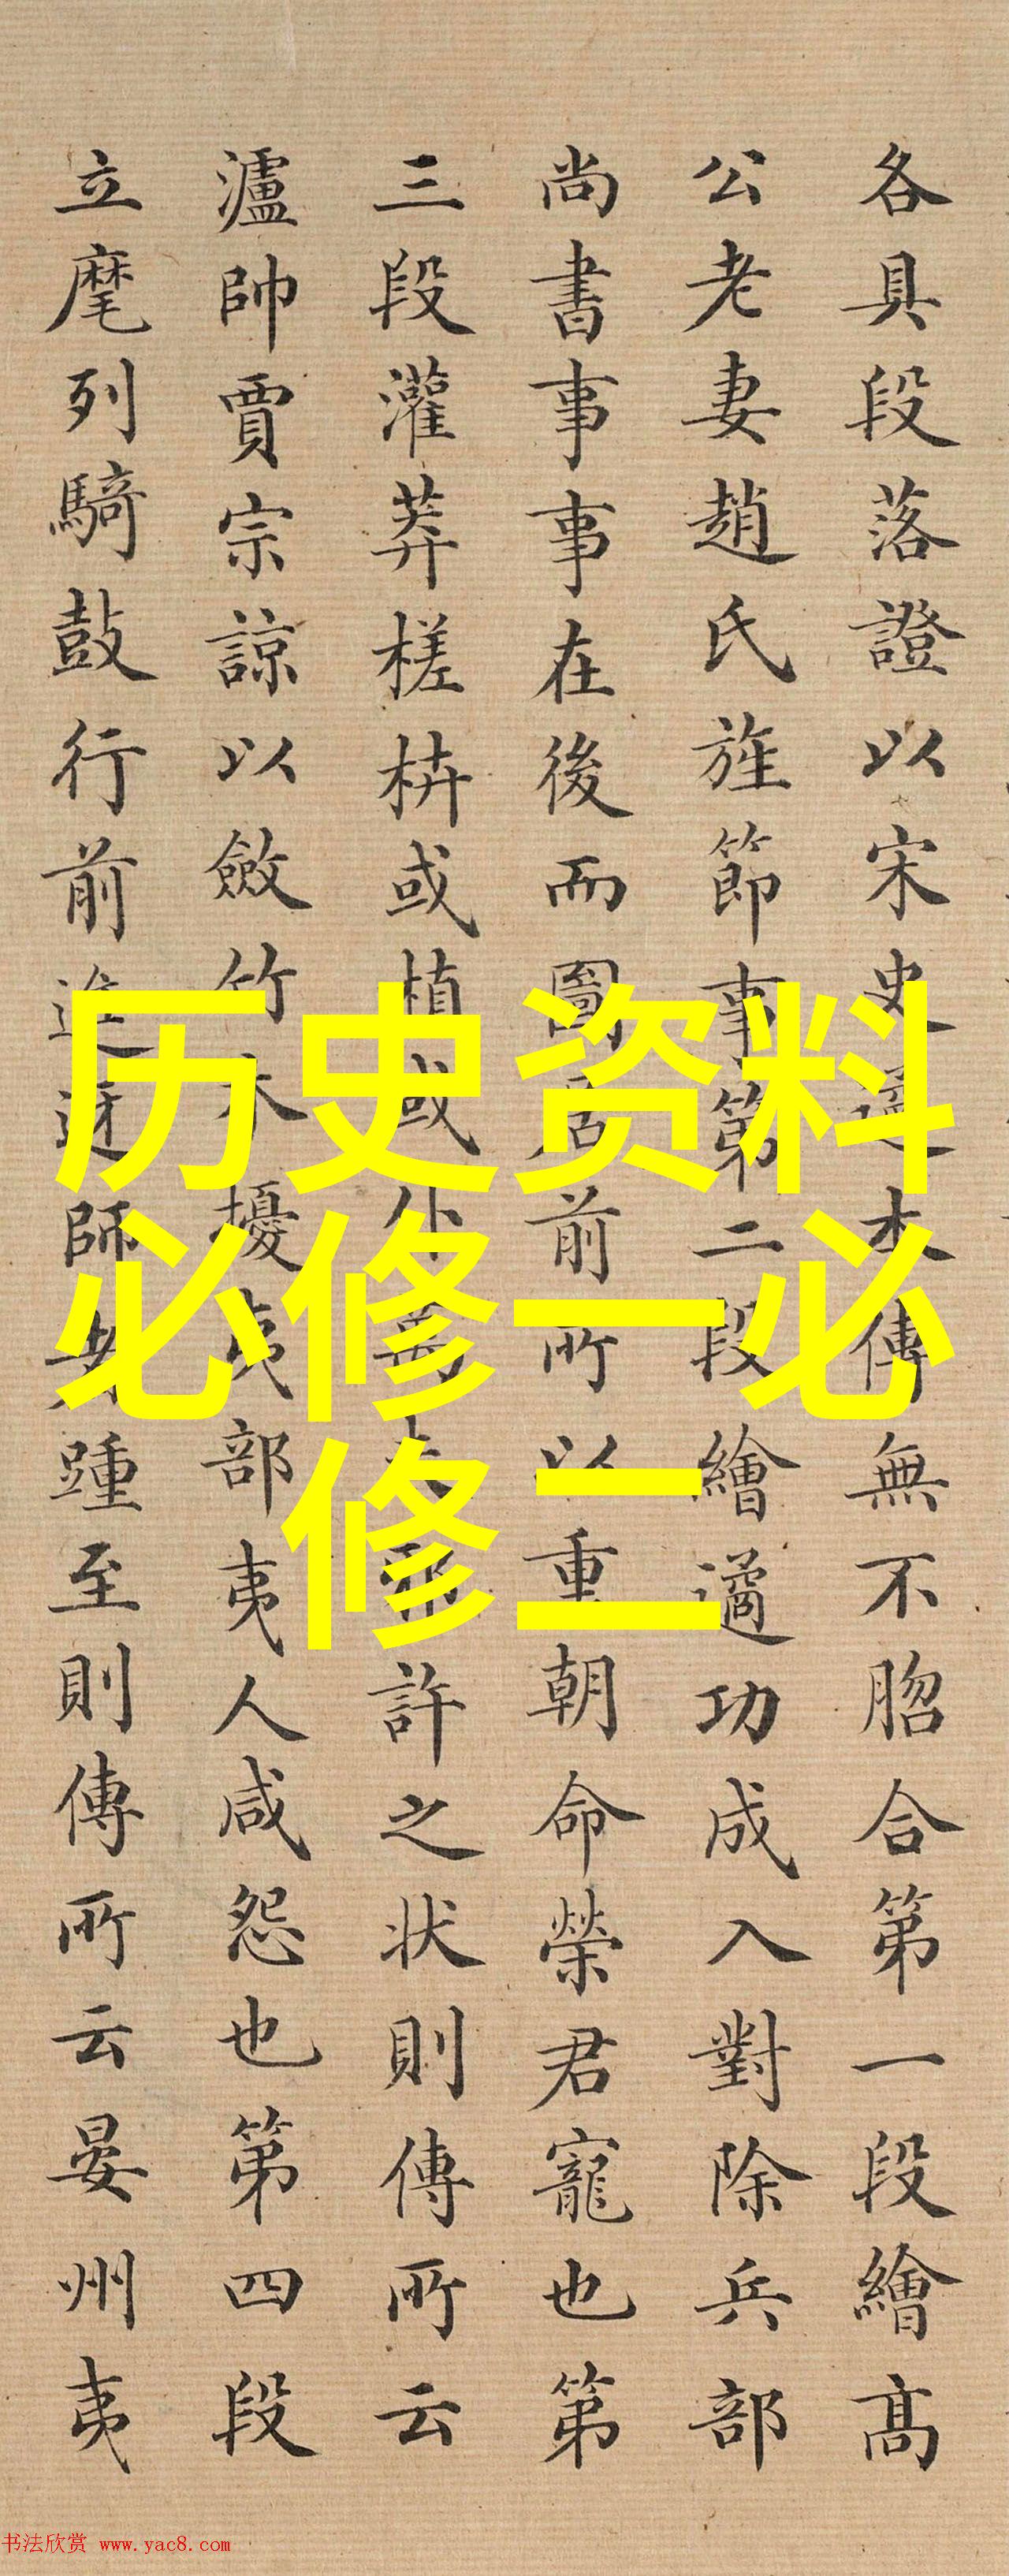 各具段落證以宋史遹本傳無不脗合第一段繪高
公老妻趙氏旌節事第二段繪遹功成入對除兵部
尚書事事在後而圖居前所以重朝命榮君寵也第
三段灌莽槎枿或植或仆萬夫邪許之狀則傳所云
瀘帥賈宗諒以斂竹木擾夷部夷人咸怨也第四段
立麾列騎鼓行前進迓師者踵至則傳所云晏州夷
历史资料
必修一必
修二
书法欣赏 www.yac8.com